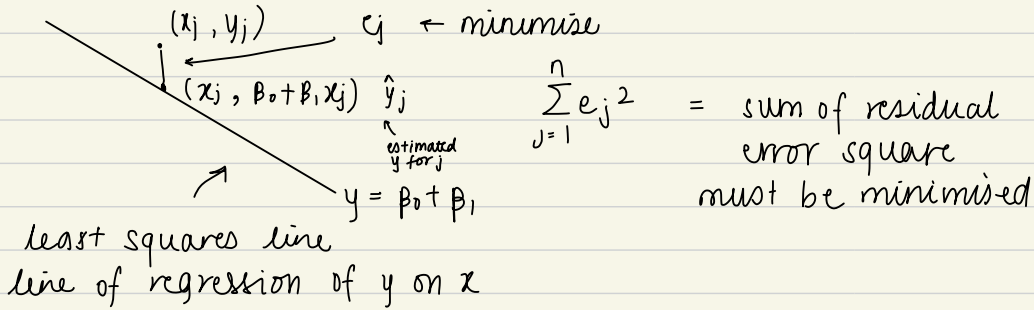 (xj , yj) ej ← minimise
(xj , β₀+β₁xj) ŷj
estimated
y for j
n
∑ ej² = sum of residual
j=1
error square
must be minimised
y = β₀+ β₁
least squares line
line of regression of y on x